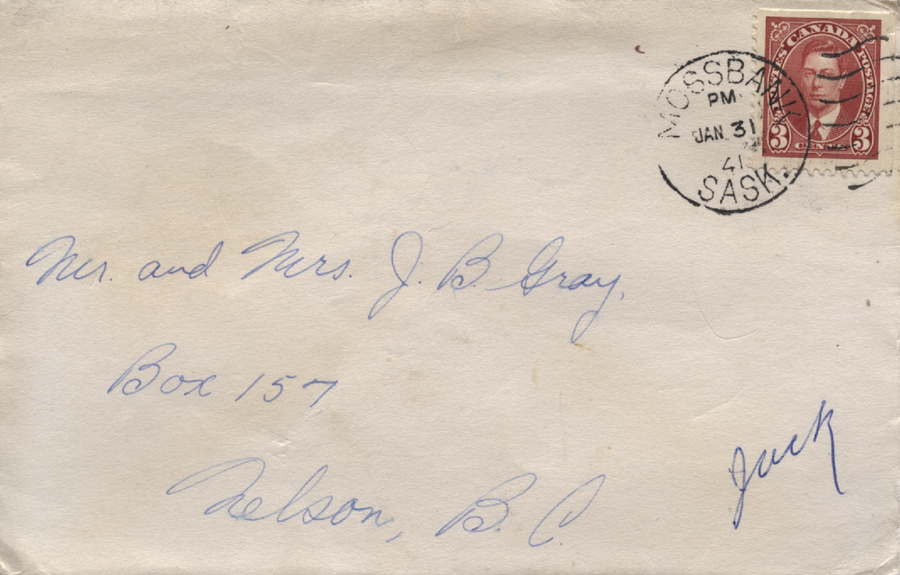 POSTES CANADA POSTAGE
3 CENTS 3
MOSSBANK
PM
JAN 31
41
SASK.
Mr. and Mrs. J. B. Gray,
Box 157
Nelson, B. C.
Jack